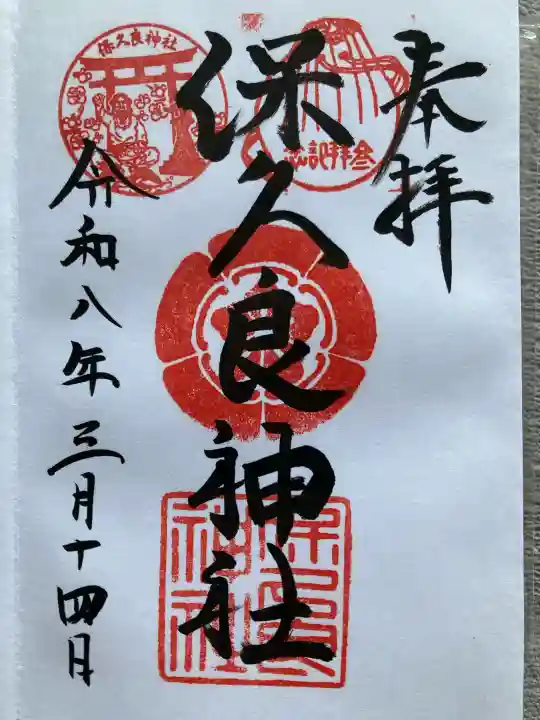 奉拝
参拝記念
保久良神社
保久良神社
保久良神社
令和八年三月十四日